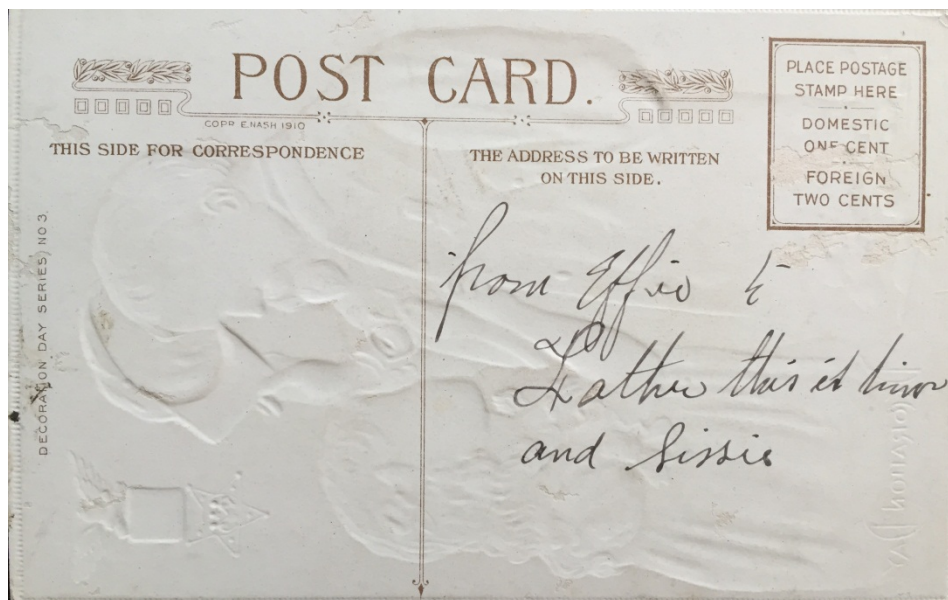 POST CARD.
COPR. E. NASH 1910
THIS SIDE FOR CORRESPONDENCE
THE ADDRESS TO BE WRITTEN
ON THIS SIDE.
PLACE POSTAGE
STAMP HERE
DOMESTIC
ONE CENT
FOREIGN
TWO CENTS
DECORATION DAY SERIES) NO 3.
from Effie
this
and Sissie